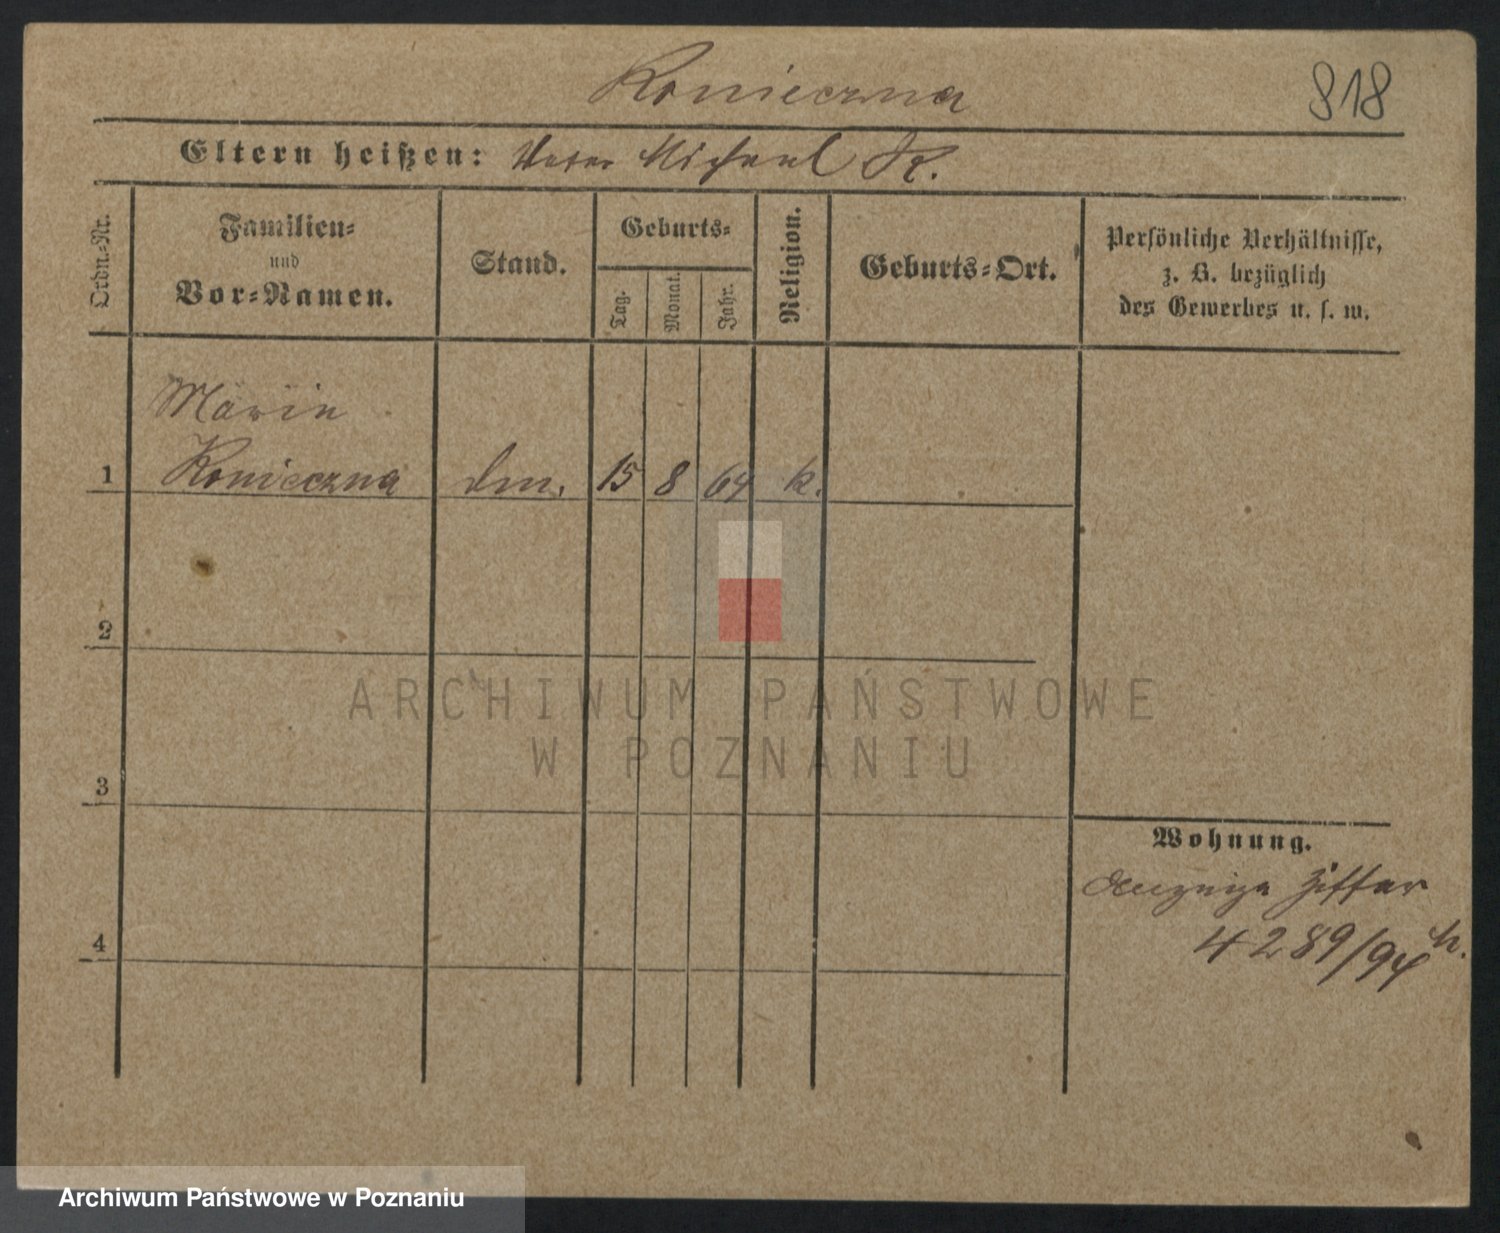 Konieczna
818
Eltern heißen: Vater Michael K.
Ordn.-Nr.
Familien-
und
Vor-Namen.
Stand.
Geburts-
Tag.
Monat.
Jahr.
Religion.
Geburts-Ort.
Persönliche Verhältnisse,
z. B. bezüglich
des Gewerbes u. s. w.
Marie
1 Konieczna 15 8 64 k.
2
3
4
Wohnung.
Anzeige Ziffer
4289/94
ARCHIWUM PAŃSTWOWE
W POZNANIU
Archiwum Państwowe w Poznaniu